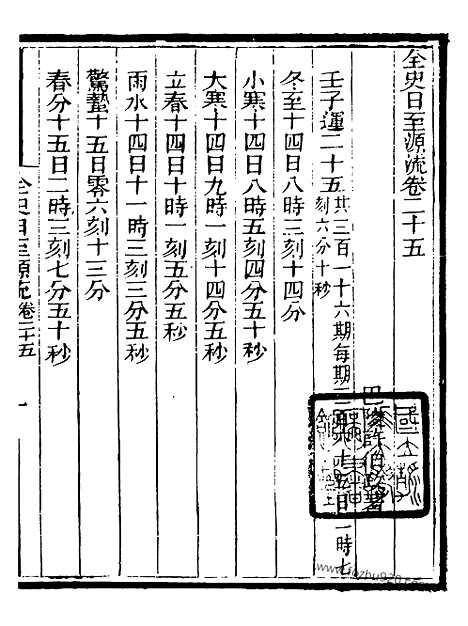 全史日至源流卷二十五
巴陵許伯政著
壬子運二十五其三百一十六期每期三百六十五日二時七刻六分十秒
冬至十四日八時三刻十四分
小寒十四日八時五刻四分五十秒
大寒十四日九時一刻十四分五秒
立春十四日十時一刻五分五秒
雨水十四日十一時三刻三分五秒
驚蟄十五日零六刻十三分
春分十五日二時三刻七分五十秒
全史日至源流卷二十五
一